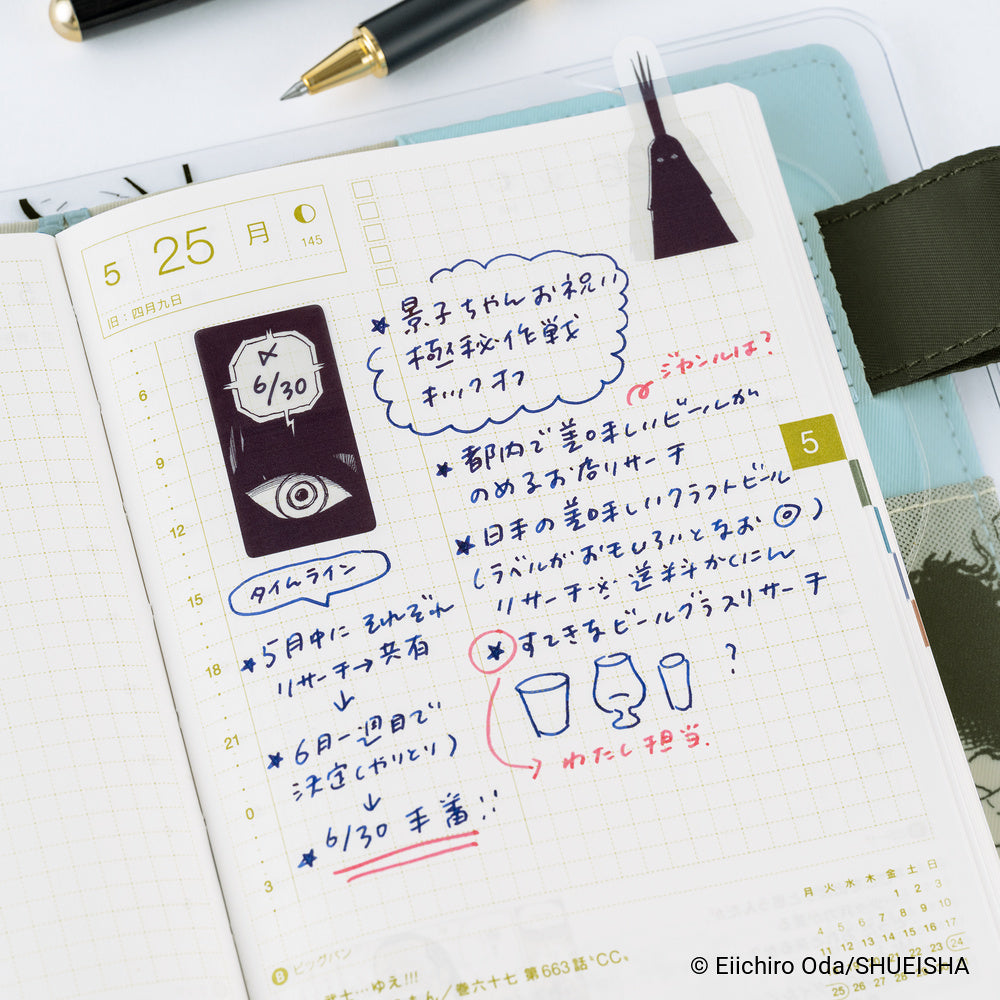 5 25 月
145
旧：四月九日
6
9
12
15
18
21
0
3
6/30
タイムライン
★5月中に それぞれ
リサーチ→共有
↓
★6月一週目で
決定(やりとり)
↓
★6/30 本番!!
★景子ちゃんお祝い
極秘作戦
キックオフ
ジャンルは?
★都内で美味しいビールが
のめるお店リサーチ
★日本の美味しいクラフトビール
(ラベルがおもしろいとなお◎)
リサーチ※送料かくにん
★すてきなビールグラスリサーチ
?
わたし担当.
5
月 火 水 木 金 土 日
1 2 3
4 5 6 7 8 9 10
11 12 13 14 15 16 17
18 19 20 21 22 23 24
25 26 27 28 29 30 31
ビッグパン
武士…ゆえ!!!
もん／巻六十七 第663話〝CC〟
© Eiichiro Oda/SHUEISHA